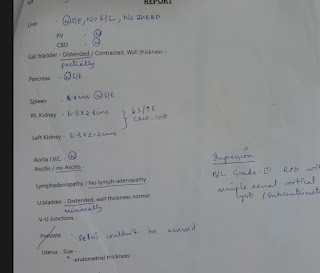 REPORT
Liver - (N) S/E, NO F/L, NO IHBRD
PV - (N)
CBD - (N)
Gall bladder - Distended / Contracted. Wall thickness -
partially
Pancreas - (N) S/E
Spleen - 8.2cms (N) S/E
Rt. Kidney - 6.5x2.8cms
CMD - lost
Left Kidney - 6.3x2.2cms
Aorta I.V.C. - (N)
Ascitis / no Ascitis -
Lymphadenopathy / No lymph-adenopathy
U.bladder - Distended, wall thickness normal
minimally
V-U Junctions -
Prostate - Pelvis couldn't be assessed
Uterus - Size -
-endometrial thickness-
Impression
B/L Grade-III RPD with
simple renal cortical
cyst (subcentimetric